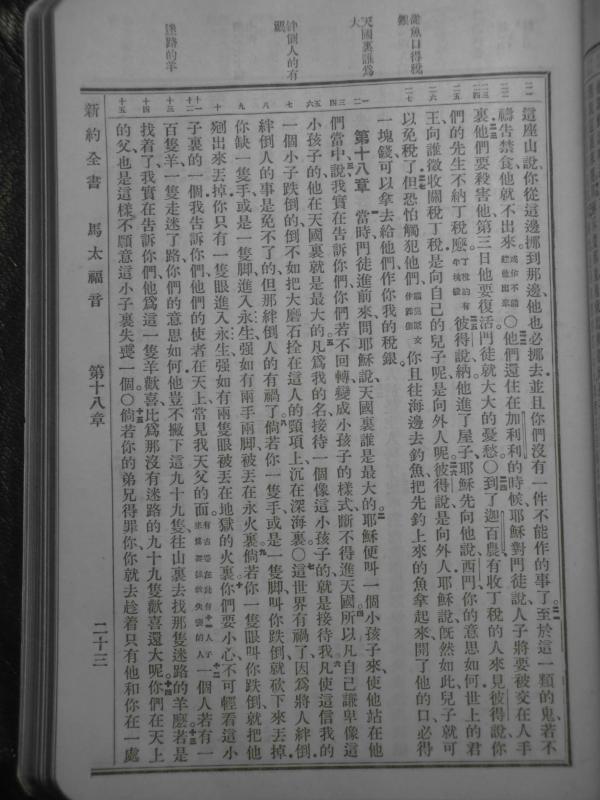 從魚口得稅銀
天國裏誰爲大
絆倒人的有禍
迷路的羊
這座山說你從這邊挪到那邊他也必挪去並且你們沒有一件不能作的事了至於這一類的鬼若不
禱告禁食他就不出來○他們還住在加利利的時候耶穌對門徒說人子將要被交在人手
裏他們要殺害他第三日他要復活門徒就大大的憂愁○到了迦百農有收丁稅的人來見彼得說你
們的先生不納丁稅麽彼得說納他進了屋子耶穌先向他說西門你的意思如何世上的君
王向誰徵收關稅丁稅是向自己的兒子呢是向外人呢彼得說是向外人耶穌說旣然如此兒子就可
以免稅了但恐怕觸犯他們你且往海邊去釣魚把先釣上來的魚拿起來開了他的口必得
一塊錢可以拿去給他們作你我的稅銀
第十八章 當時門徒進前來問耶穌說天國裏誰是最大的耶穌便叫一個小孩子來使他站在他
們當中說我實在告訴你們你們若不回轉變成小孩子的樣式斷不得進天國所以凡自己謙卑像這
小孩子的他在天國裏就是最大的凡爲我的名接待一個像這小孩子的就是接待我凡使這信我的
一個小子跌倒的倒不如把大磨石拴在這人的頸項上沉在深海裏○這世界有禍了因爲將人絆倒
絆倒人的事是免不了的但那絆倒人的有禍了倘若你一隻手或是一隻脚叫你跌倒就砍下來丟掉
你缺一隻手或是一隻脚進入永生强如有兩手兩脚被丟在永火裏倘若你一隻眼叫你跌倒就把他
剜出來丟掉你只有一隻眼進入永生强如有兩隻眼被丟在地獄的火裏你們要小心不可輕看這小
子裏的一個我告訴你們他們的使者在天上常見我天父的面一個人若有一
百隻羊一隻走迷了路你們的意思如何他豈不撇下這九十九隻往山裏去找那隻迷路的羊麽若是
找着了我實在告訴你們他爲這一隻羊歡喜比爲那沒有迷路的九十九隻歡喜還大呢你們在天上
的父也是這樣不願意這小子裏失喪一個○倘若你的弟兄得罪你你就去趁着只有他和你在一處
新約全書 馬太福音 第十八章 二十三